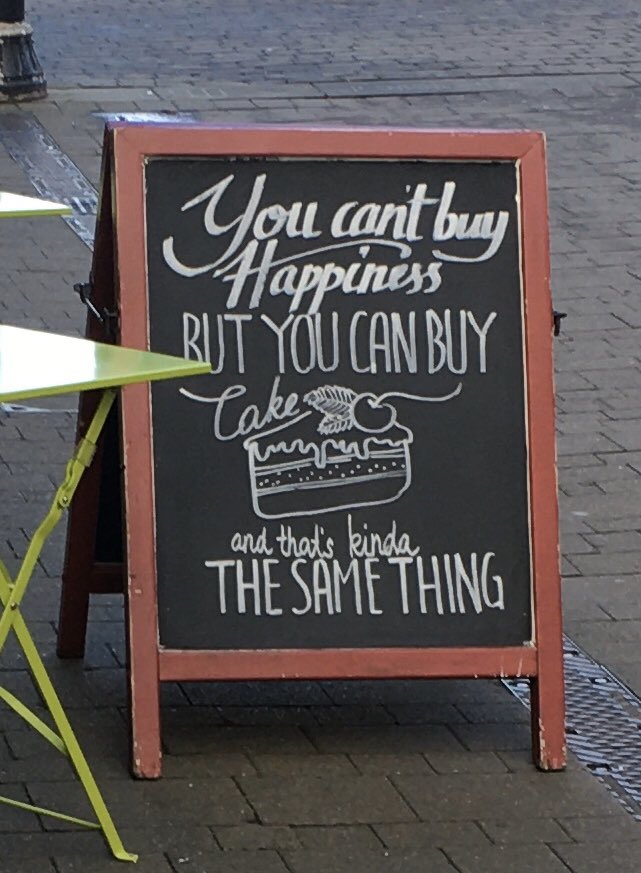 You can't buy
Happiness
BUT YOU CAN BUY
Cake
and that's kinda
THE SAME THING